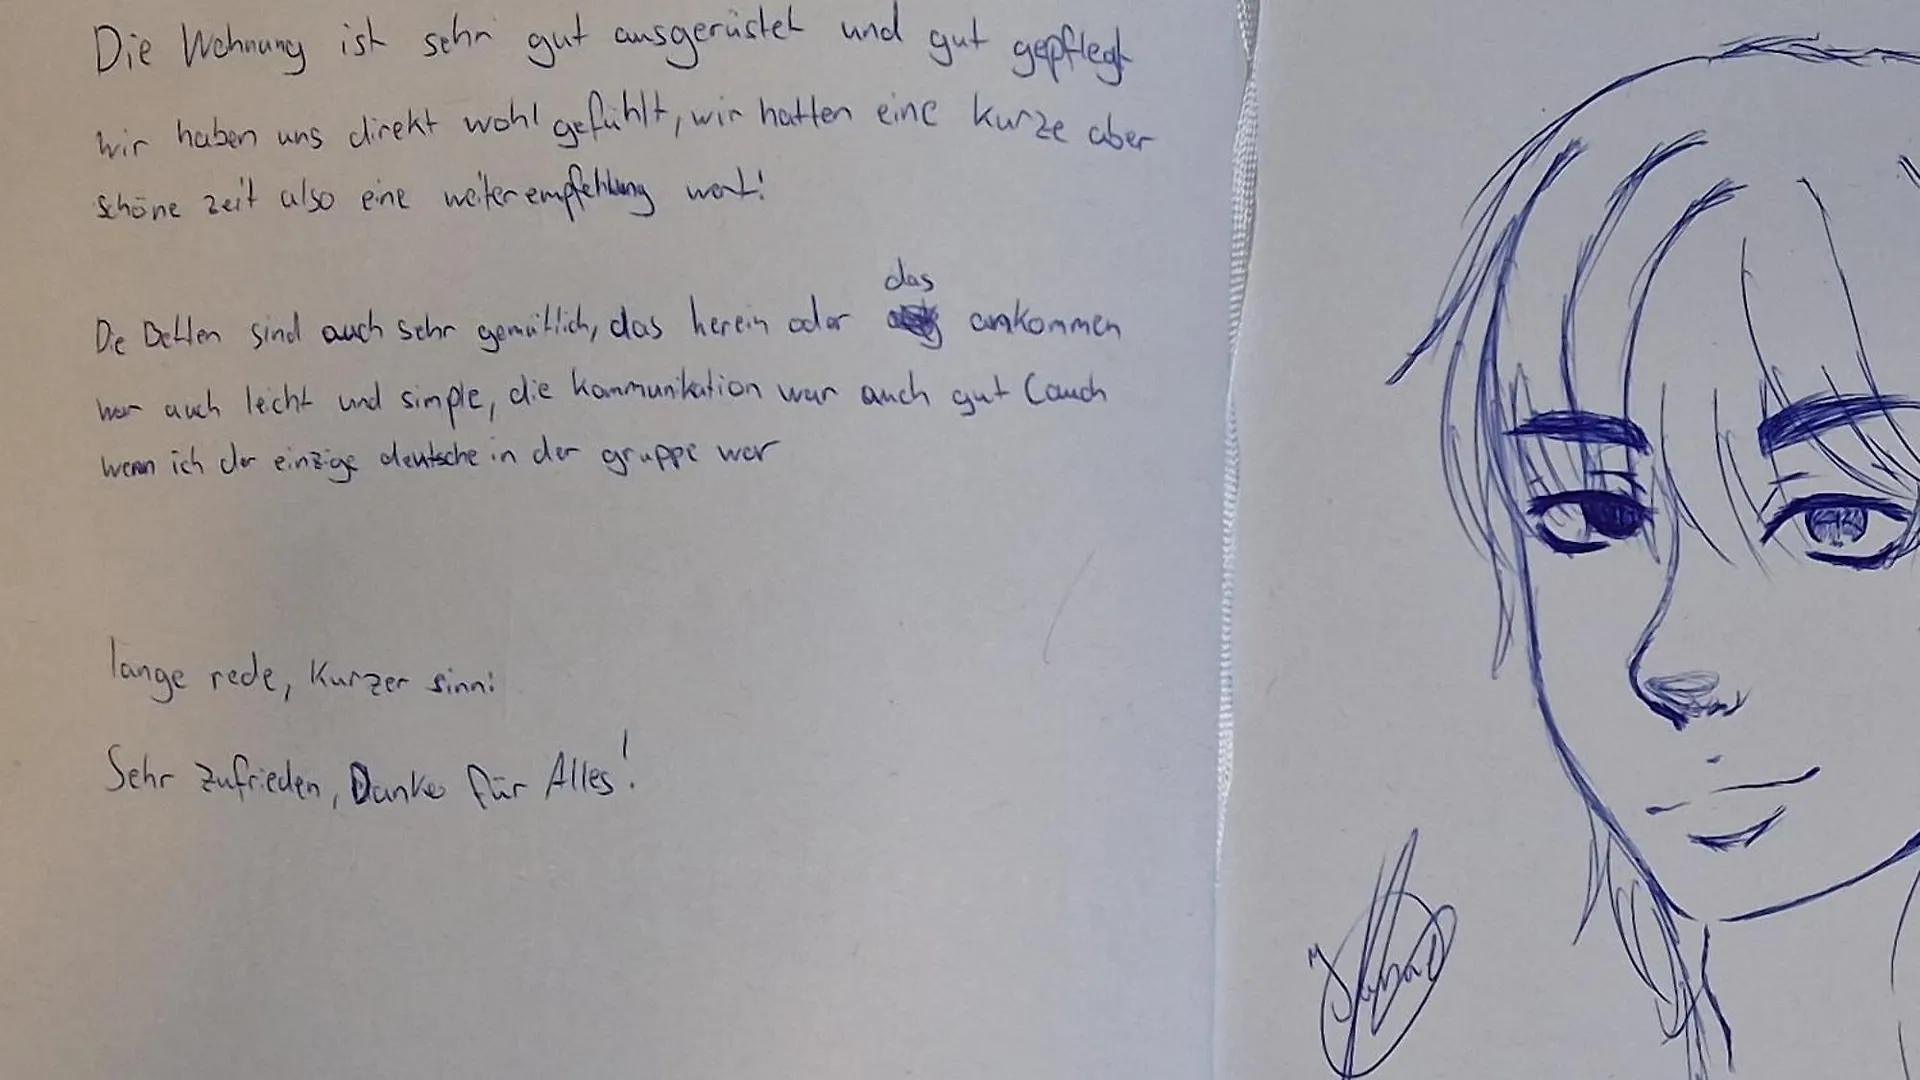 Die Wohnung ist sehr gut ausgerüstet und gut gepflegt
wir haben uns direkt wohl gefühlt, wir hatten eine kurze aber
schöne zeit also eine weiterempfehlung wert!
das
Die betten sind auch sehr gemütlich, das herein oder ankommen
war auch leicht und simple, die kommunikation war auch gut (auch
wenn ich der einzige deutsche in der gruppe war
lange rede, kurzer sinn:
Sehr zufrieden, Danke für Alles!